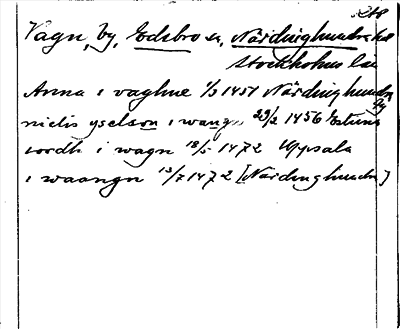 Vagn, by, Edsbro sn, Närdinghundra hd
Stockholms län
Anna i vaghne 1/3 1451 Närdinghundra
niclis yselson i wangn 29/2 1456 Estuna
tordh i wagn 18/5 1472 Uppsala
i waangn 13/7 1472 [Närdinghundra]